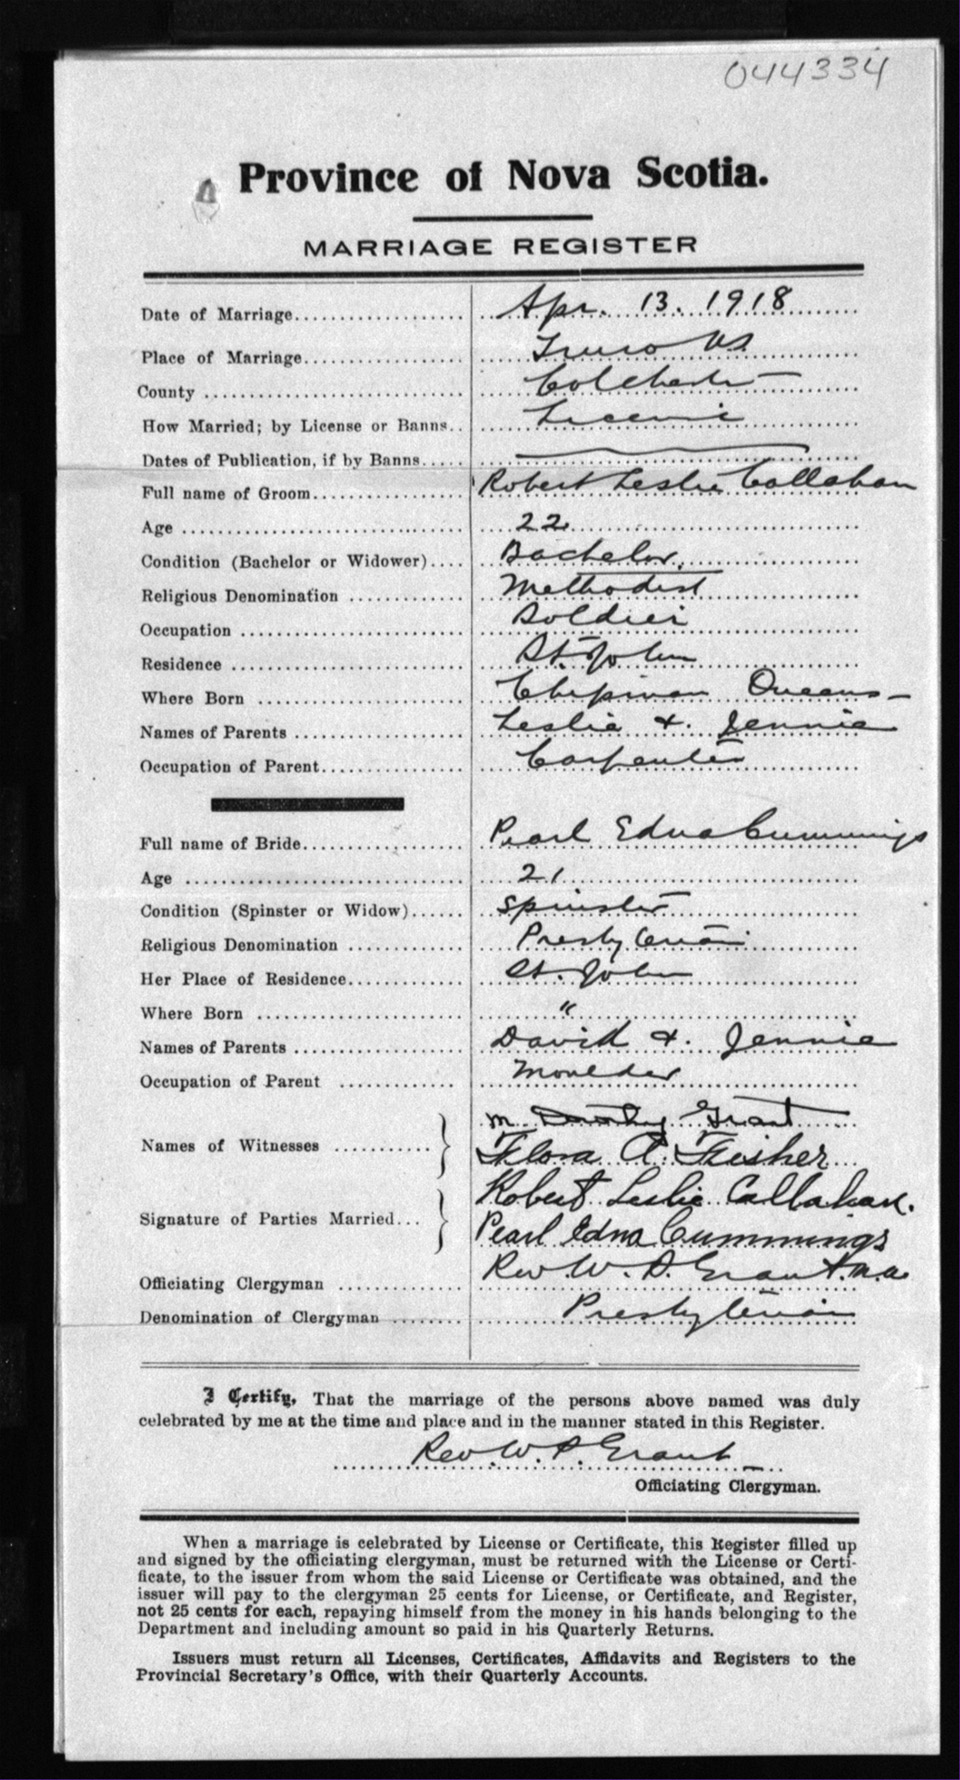 044334
Province of Nova Scotia.
MARRIAGE REGISTER
Date of Marriage Apr. 13. 1918
Place of Marriage Truro NS
County Colchester
How Married; by License or Banns License
Dates of Publication, if by Banns
Full name of Groom Robert Leslie Callahan
Age 22
Condition (Bachelor or Widower) Bachelor
Religious Denomination Methodist
Occupation Soldier
Residence St. John
Where Born Chipman Queens
Names of Parents Leslie + Jennie
Occupation of Parent Carpenter
Full name of Bride Pearl Edna Cummings
Age 21
Condition (Spinster or Widow) Spinster
Religious Denomination Presbyterian
Her Place of Residence St. John
Where Born "
Names of Parents David + Jennie
Occupation of Parent Moulder
M Dorothy Grant
Names of Witnesses Flora A. Fisher
Robert Leslie Callahan.
Signature of Parties Married Pearl Edna Cummings
Officiating Clergyman Rev. W. P. Grant. M.A.
Denomination of Clergyman Presbyterian
I Certify, That the marriage of the persons above named was duly
celebrated by me at the time and place and in the manner stated in this Register.
Rev. W. P. Grant
Officiating Clergyman.
When a marriage is celebrated by License or Certificate, this Register filled up
and signed by the officiating clergyman, must be returned with the License or Certi-
ficate, to the issuer from whom the said License or Certificate was obtained, and the
issuer will pay to the clergyman 25 cents for License, or Certificate, and Register,
not 25 cents for each, repaying himself from the money in his hands belonging to the
Department and including amount so paid in his Quarterly Returns.
Issuers must return all Licenses, Certificates, Affidavits and Registers to the
Provincial Secretary's Office, with their Quarterly Accounts.